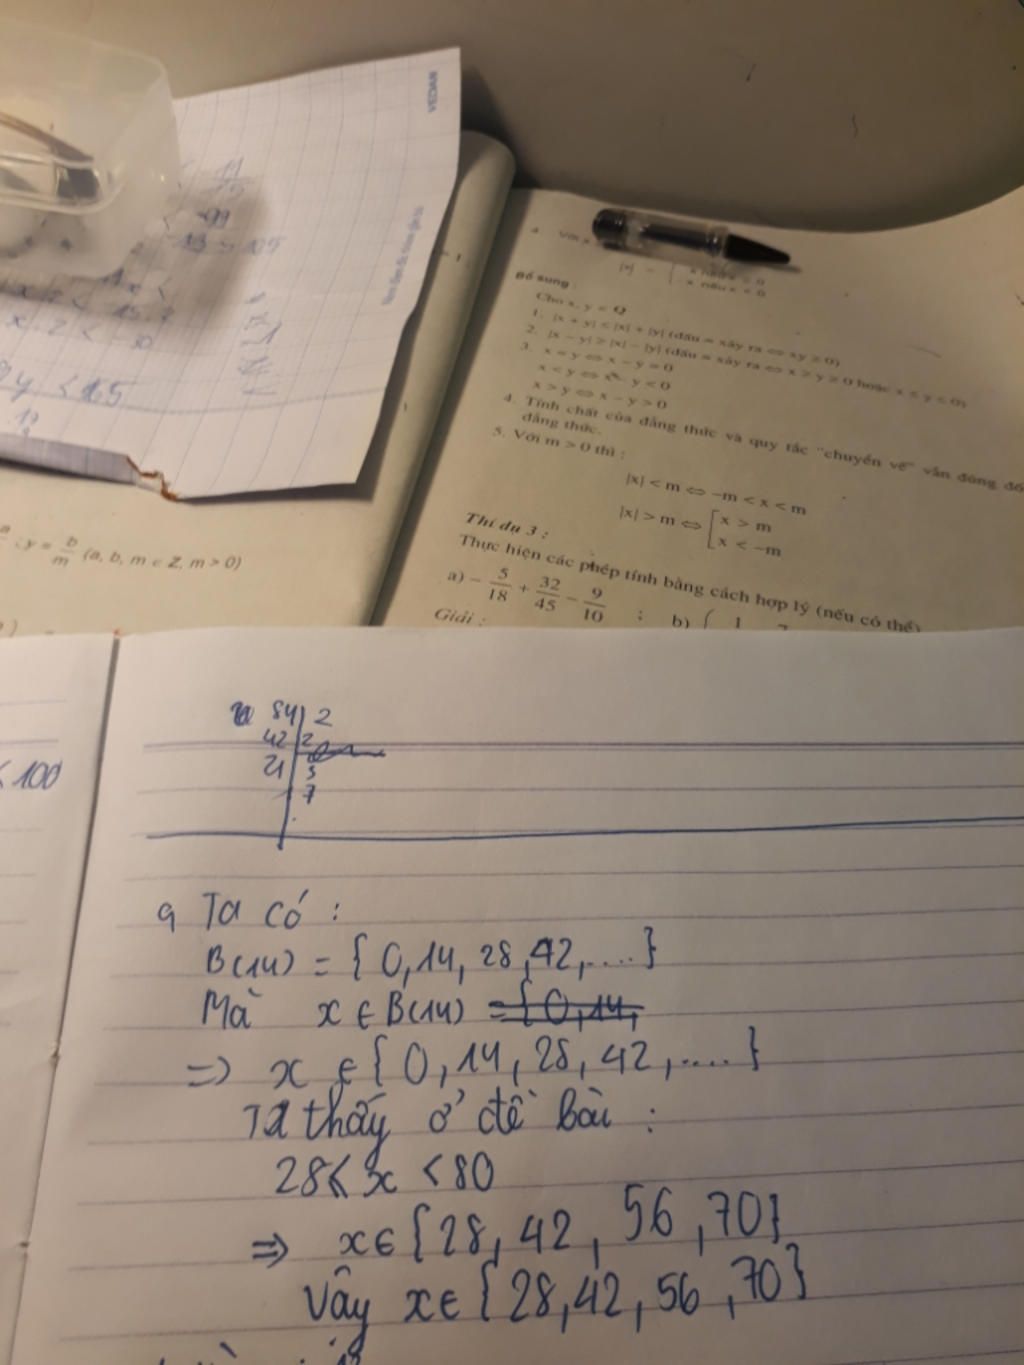 VEDAN
4. Với x
|x| = { x nếu x ≥ 0
-x nếu x < 0
Bổ sung
Cho x, y ∈ Q
1. |x + y| ≤ |x| + |y| (dấu = xảy ra ⇔ xy ≥ 0)
2. |x − y| ≥ |x| − |y| (dấu = xảy ra ⇔ x ≥ y ≥ 0 hoặc x ≤ y ≤ 0)
3. x = y ⇔ x − y = 0
x < y ⇔ x − y < 0
x > y ⇔ x − y > 0
4. Tính chất của đẳng thức và quy tắc "chuyển vế" vẫn đúng đối
đẳng thức.
5. Với m > 0 thì :
|x| < m ⇔ −m < x < m
|x| > m ⇔ [ x > m
x < −m
Thí dụ 3 :
Thực hiện các phép tính bằng cách hợp lý (nếu có thể)
a) − 5/18 + 32/45 − 9/10 ; b) ( 1
Giải :
9y < 165
; y = b/m (a, b, m ∈ Z, m > 0)
< 100
84 2
42 2
21 3
7
a, Ta có :
B(14) = { 0, 14, 28, 42, .... }
Mà x ∈ B(14) = { 0, 14,
=> x ∈ { 0, 14, 28, 42, .... }
Ta thấy ở đề bài :
28 ≤ x < 80
=> x ∈ { 28, 42, 56, 70}
Vậy x ∈ { 28, 42, 56, 70 }